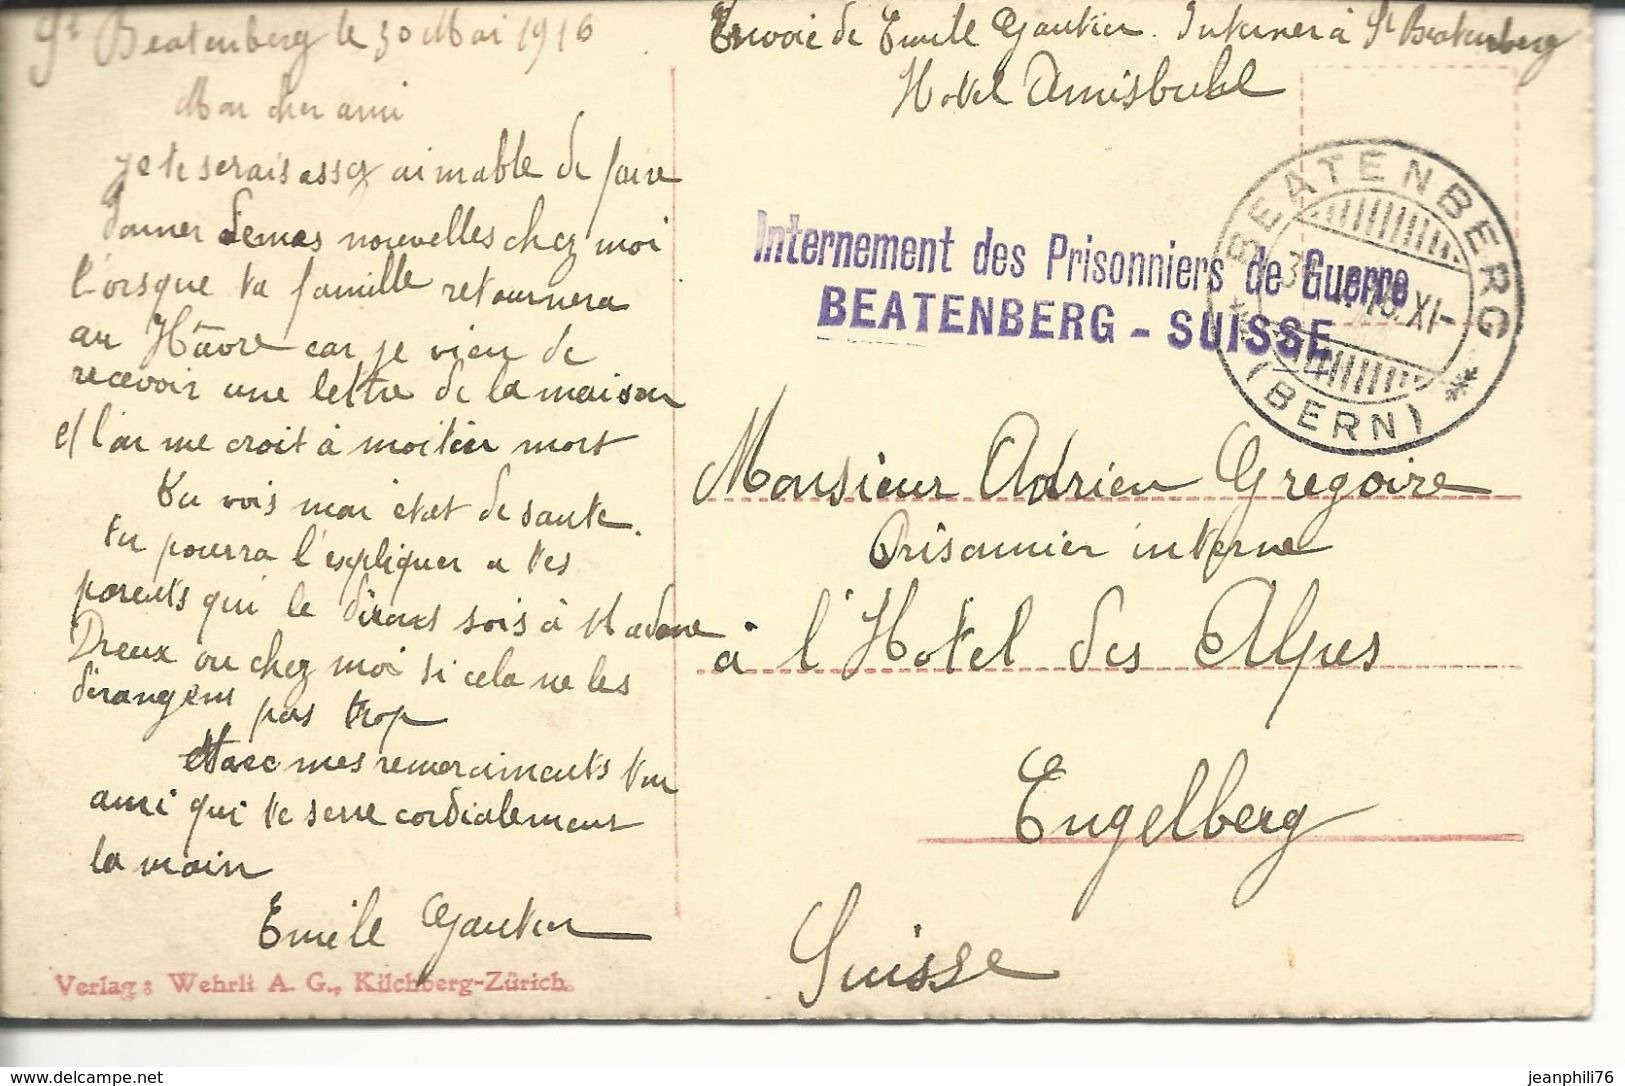 St Beatenberg le 30 Mai 1916
Mon cher ami
je te serais assez aimable de faire
donner de mes nouvelles chez moi
l'orsque ta famille retournera
au Hâvre car je vien de
recevoir une lettre de la maison
et l'on me croit à moitier mort
tu vois mon état de santé.
tu pourra l'expliquer a tes
parents qui le dirons sois à Madame
Dreux ou chez moi si cela ne les
dérangent pas trop
Avec mes remerciments ton
ami qui te serre cordialement
la main
Emile Gautier
Verlag: Wehrli A. G., Kilchberg-Zürich.
Envoie de Emile Gautier Interner à St Beatenberg
Hotel Amisbuhl
BEATENBERG
(BERN)
XI-
Internement des Prisonniers de Guerre
BEATENBERG - SUISSE
Monsieur Adrien Gregoire
Prisonnier interne
à l'Hotel des Alpes
Engelberg
Suisse
jeanphili76